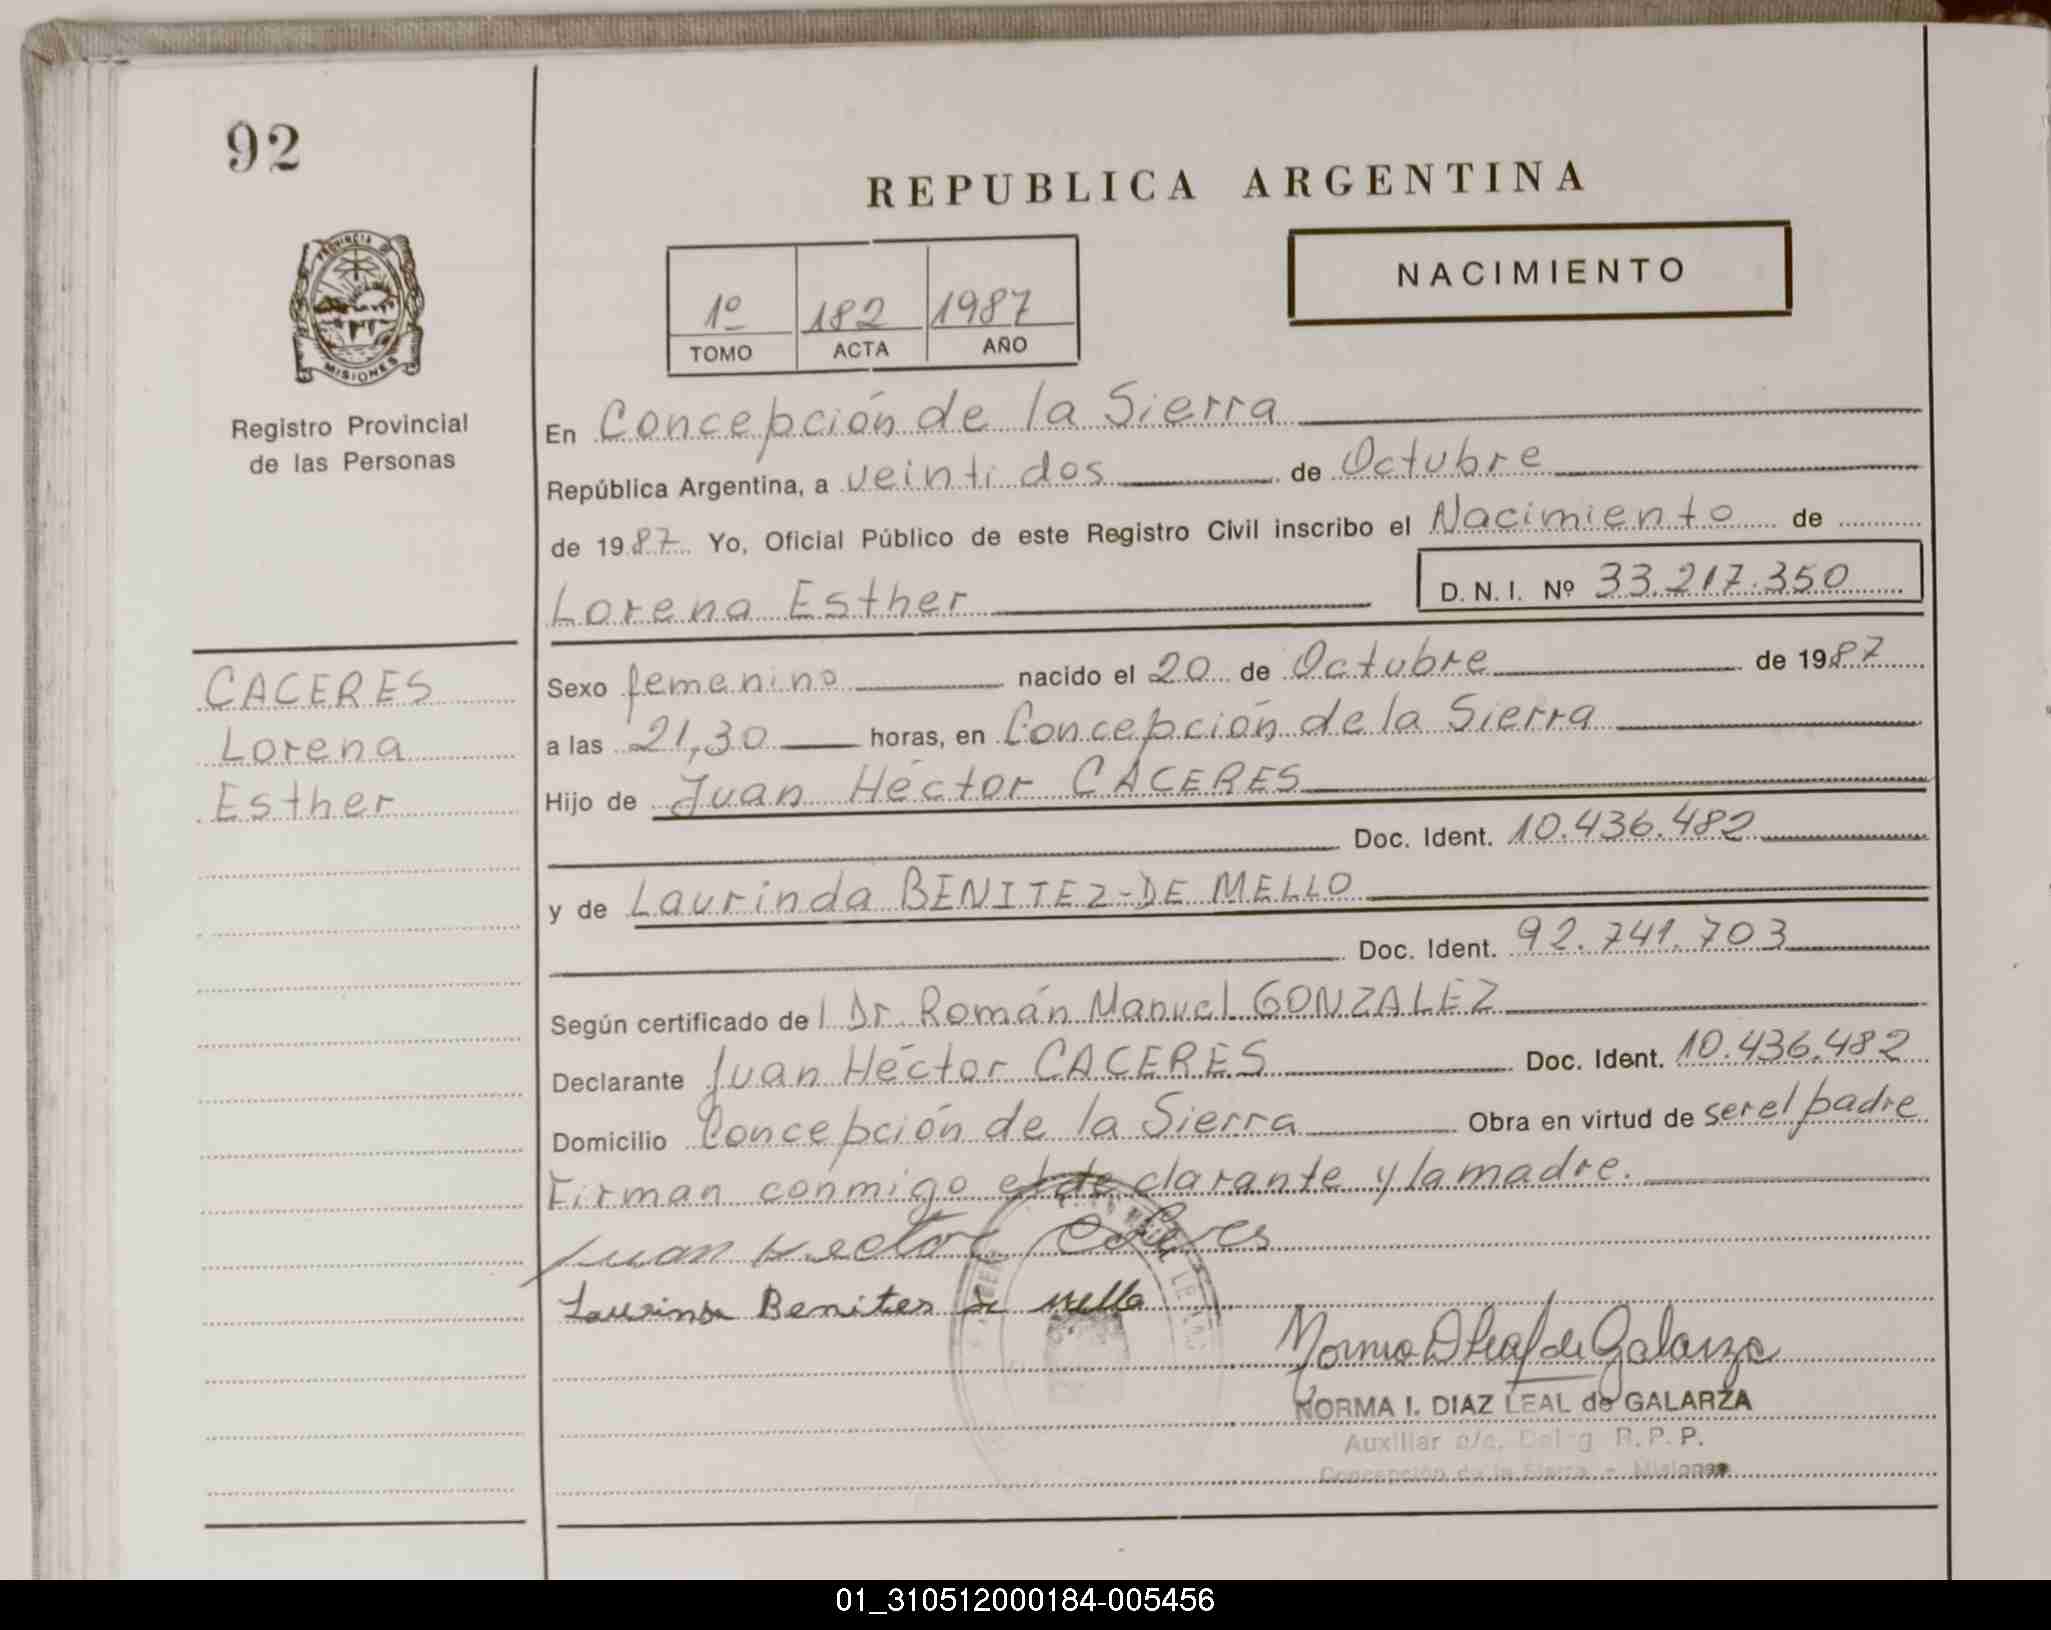 92
REPUBLICA ARGENTINA
NACIMIENTO
1º 182 1987
TOMO ACTA AÑO
PROVINCIA DE
MISIONES
Registro Provincial
de las Personas
En Concepción de la Sierra
República Argentina, a veinti dos de Octubre
de 1987 Yo, Oficial Público de este Registro Civil inscribo el Nacimiento de
Lorena Esther D.N.I. Nº 33.217.350
CACERES
Lorena
Esther
Sexo femenino nacido el 20 de Octubre de 1987
a las 21,30 horas, en Concepción de la Sierra
Hijo de Juan Héctor CACERES
Doc. Ident. 10.436.482
y de Laurinda BENITEZ-DE MELLO
Doc. Ident. 92.741.703
Según certificado del Dr. Román Manuel GONZALEZ
Declarante Juan Héctor CACERES Doc. Ident. 10.436.482
Domicilio Concepción de la Sierra Obra en virtud de ser el padre
Firman conmigo el declarante y la madre.
Juan Hector Caseres
Laurinda Benites de mello
Norma D Leal de Galarza
NORMA I. DIAZ LEAL de GALARZA
Auxiliar a/c. Deleg R.P.P.
Concepción de la Sierra - Misiones
01_310512000184-005456